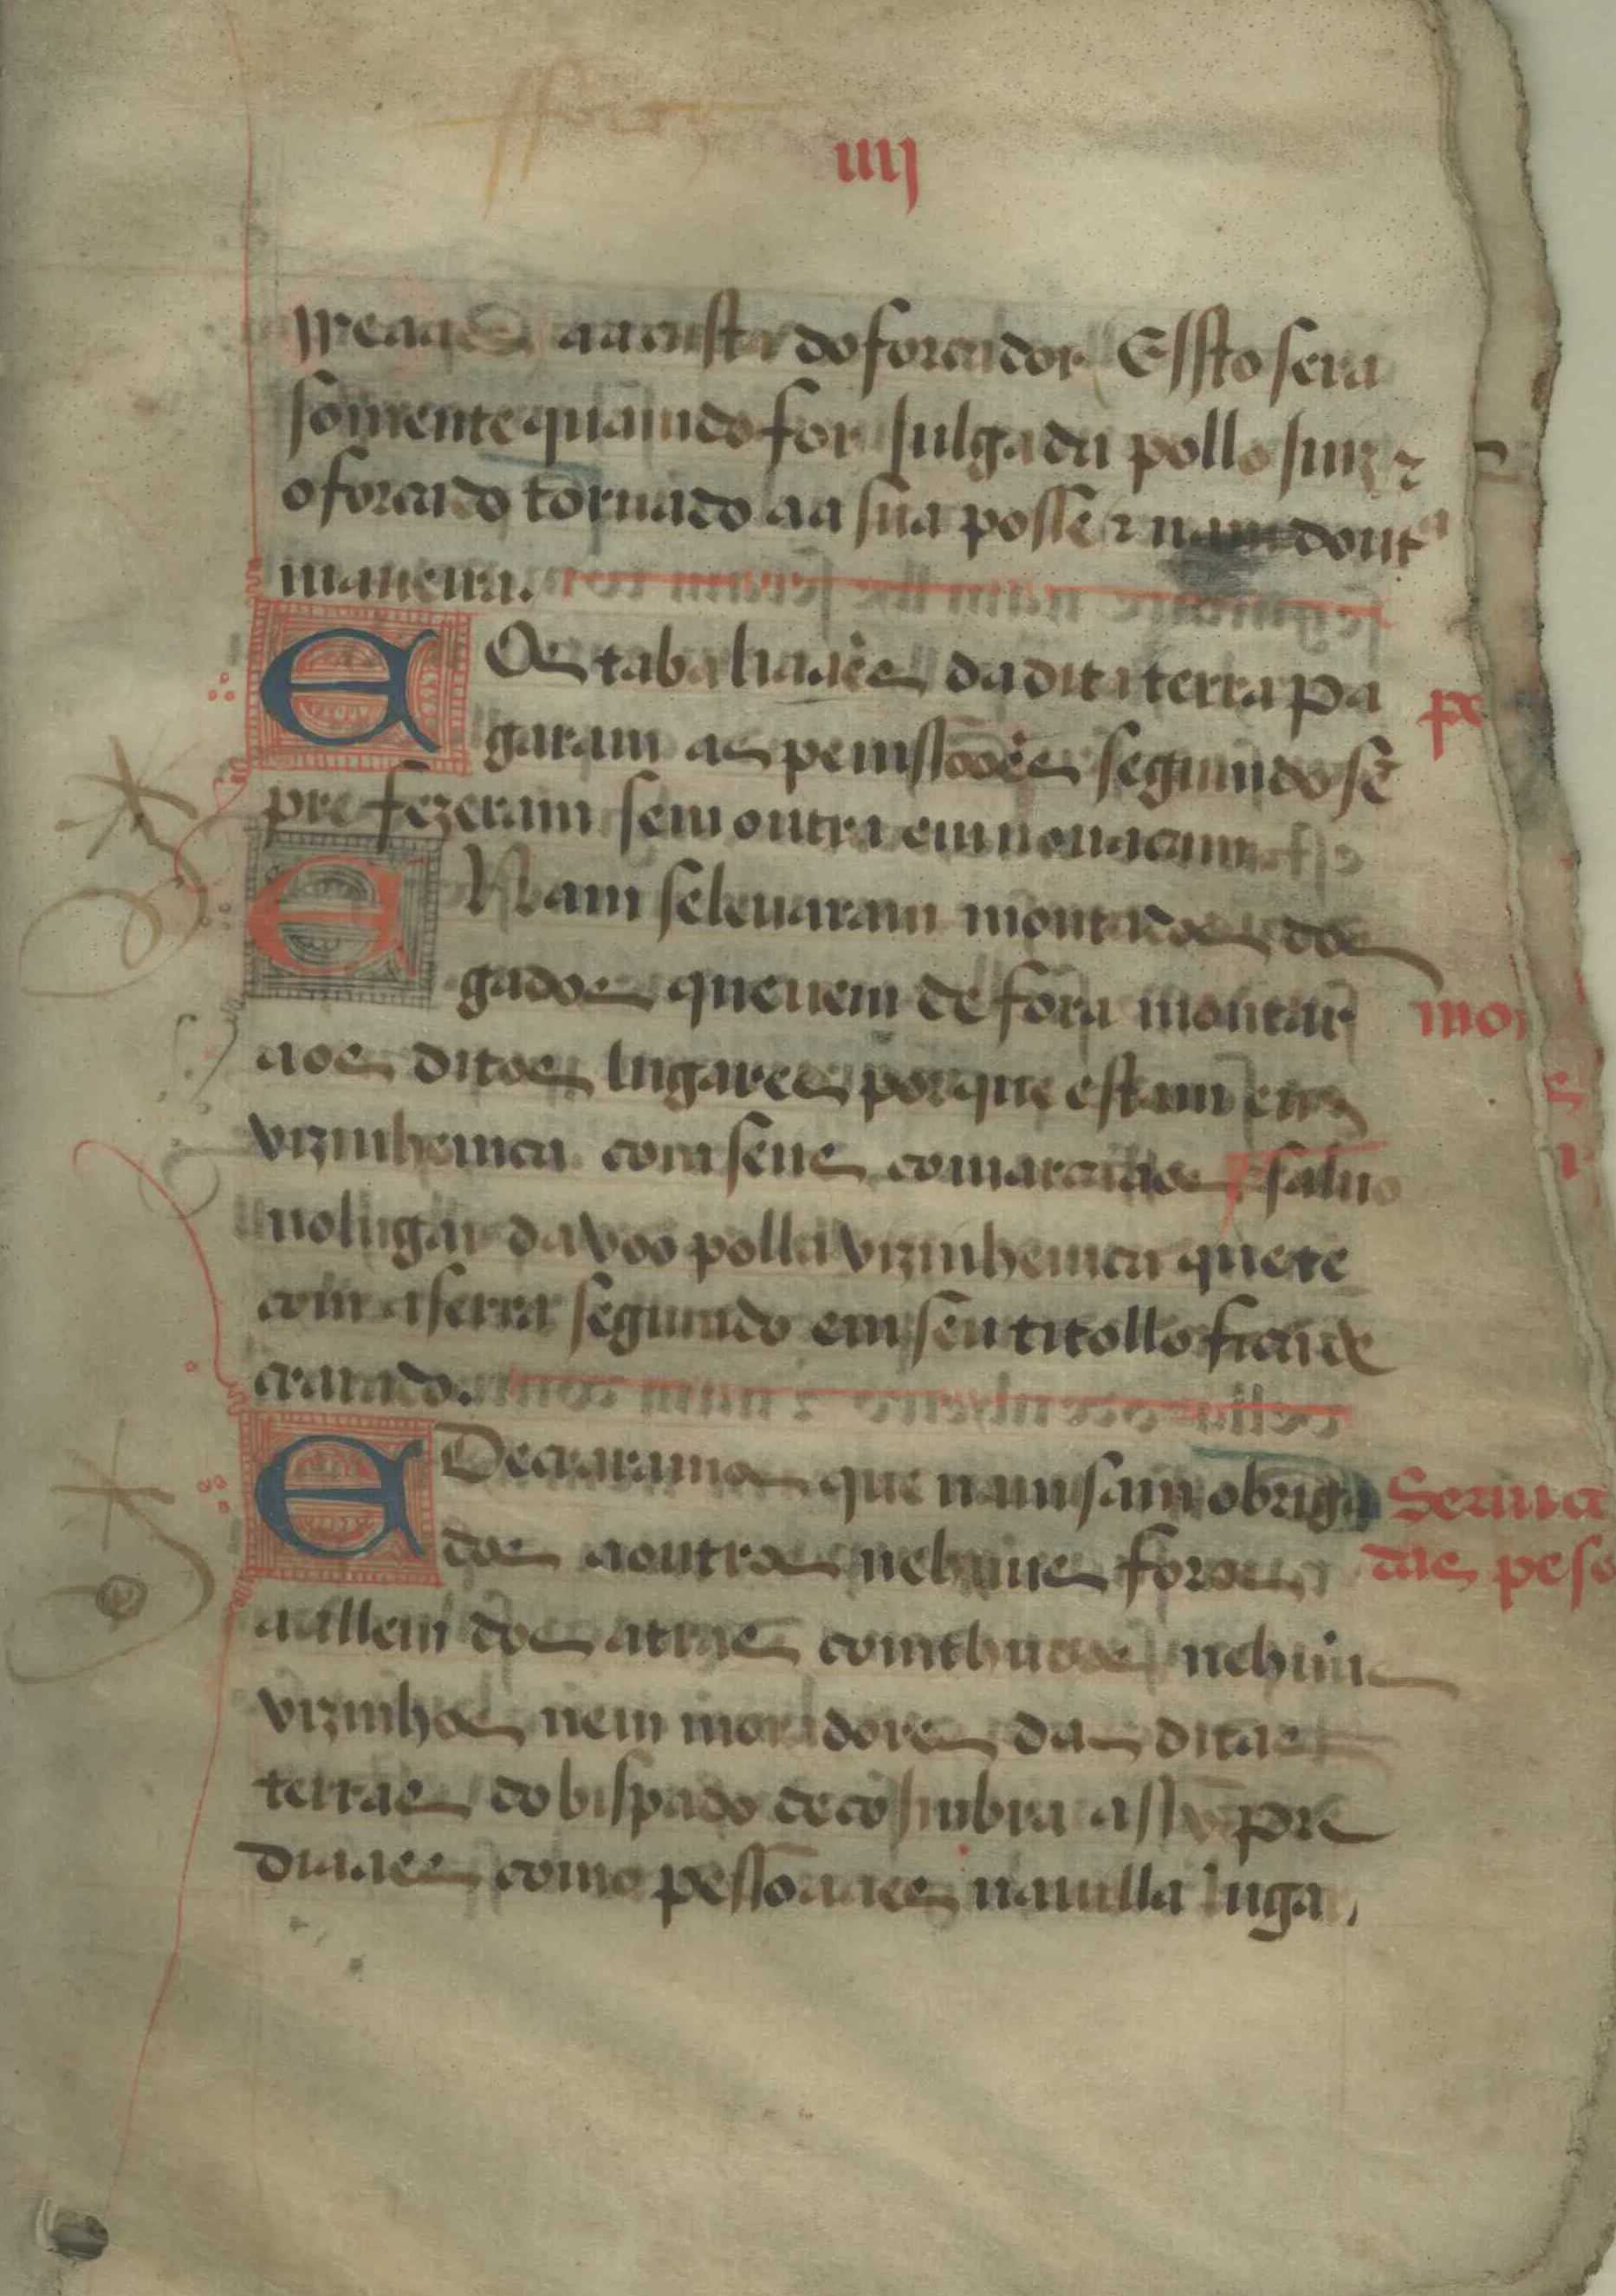 iiij
aacusta do forcador Essto sera
somente quamdo for julgada pollo juiz ⁊
o forcado tornado aa sua posse ⁊ nam doutra
maneira.
E Os tabaliaães da dita terra pa
garam as pemssoões segumdo sẽ
pre fezeram sem outra emnouacam
E Nam se leuaram montados dos
gados que uem de fora montar
aos ditos lugares porque estam em
vizinhemca com seus comarcãaos saluo
no lugar davoo polla vizinhemca que te
com a serra segumdo em seu titollo fica de
crarado.
E Decraramos que nam sam obriga
dos a outros nehuus foros
aallem dos atras comthudos nehuus
vizinhos nem moradores das ditas
terras do bispado de cojmbra assy pre
diaaes como pessoaaes na villa lugar
mon
Seruica
daes peso